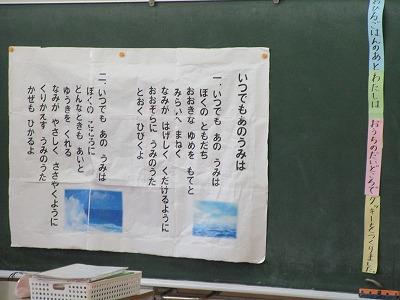 いつでもあのうみは
一、いつでも あの うみは
ぼくの ともだち
おおきな ゆめを もてと
みらいへ まねく
なみが はげしく くだけるように
おおぞらに うみのうた
とおく ひびくよ
二、いつでも あの うみは
ぼくの こころに
どんなときも あいと
ゆうきを くれる
なみが やさしく ささやくように
くりかえす うみのうた
かぜも ひかるよ
おひるごはんのあと わたしは おうちのだいどころで クッキーをつくりました。